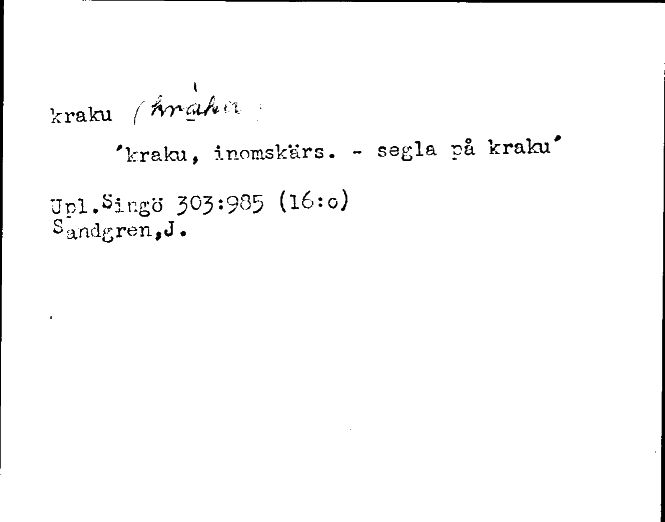 kraku
'kraku, inomskärs. - segla på kraku'
Upl.Singö 303:985 (16:o)
Sandgren,J.